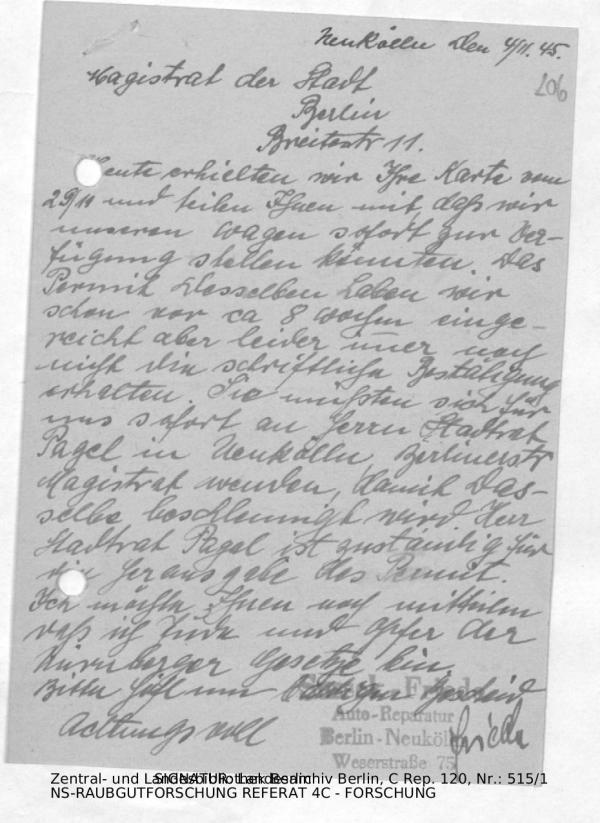 Neukölln den 4/11. 45.
106
Magistrat der Stadt
Berlin
Breitestr 11.
Heute erhielten wir Ihre Karte vom
29/10 und teilen Ihnen mit, daß wir
unseren Wagen sofort zur Ver-
fügung stellen könnten. Das
Permit desselben haben wir
schon vor ca 8 Wochen einge-
reicht aber leider imer noch
nicht die schriftliche Bestätigung
erhalten. Sie müßten sich für
uns sofort an Herrn Stadtrat
Pagel in Neukölln, Berlinerstr
Magistrat wenden, damit das-
selbe beschleunigt wird. Herr
Stadtrat Pagel ist zuständig für
die Herausgabe des Permit.
Ich möchte Ihnen noch mitteilen
daß ich Jude und Opfer der
Nürnberger Gesetze bin.
Bitte höfl um Bescheid
Achtungsvoll
Auto-Reparatur
Berlin-Neukölln
Weserstraße 75
Zentral- und Landesbibliothek Berlin
SIGNATUR: Landesarchiv Berlin, C Rep. 120, Nr.: 515/1
NS-RAUBGUTFORSCHUNG REFERAT 4C - FORSCHUNG